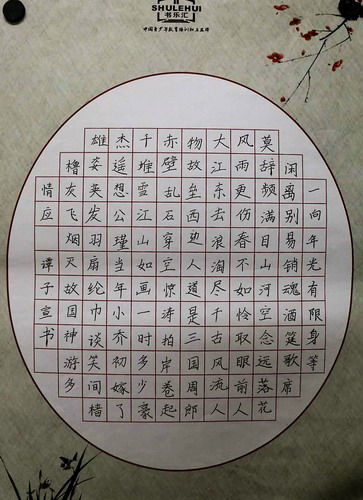 SHULEHUI
书乐汇
中国青少年教育培训知名品牌
一向年光有限身等
闲离别易销魂酒筵歌席
莫辞频满目山河空念远落花
风雨更伤春不如怜取眼前人
大江东去浪淘尽千古风流人
物故垒西边人道是三国周郎
赤壁乱石穿空惊涛拍岸卷起
千堆雪江山如画一时多少豪
杰遥想公瑾当年小乔初嫁了
雄姿英发羽扇纶巾谈笑间樯
橹灰飞烟灭故国神游多
情应 谭子宣书